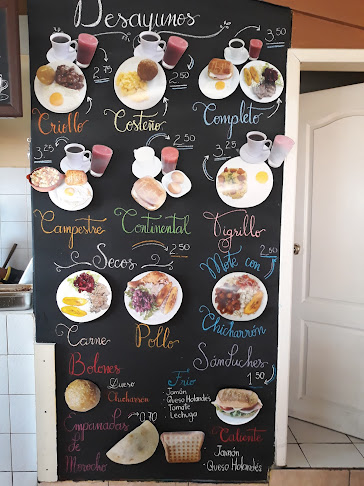 Desayunos
2,75
2,50
3,50
Criollo
Costeño
Completo
3,25
2,50
3,25
Campestre
Continental
Tigrillo
Secos
2,50
Mote con
2,50
Chicharrón
Carne
Pollo
Bolones
Queso
Chicharrón
Sánduches
1,50
Frío
Jamón
Queso Holandes
Tomate
Lechuga
Empanadas
de
Morocho
0,70
Caliente
Jamón
Queso Holandés